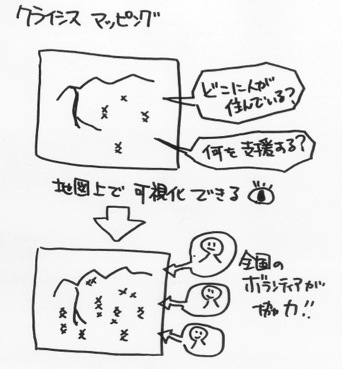 クライシス マッピング
どこに人が
住んでいる?
何を支援する?
地図上で 可視化できる
全国の
ボランティアが
協力!!